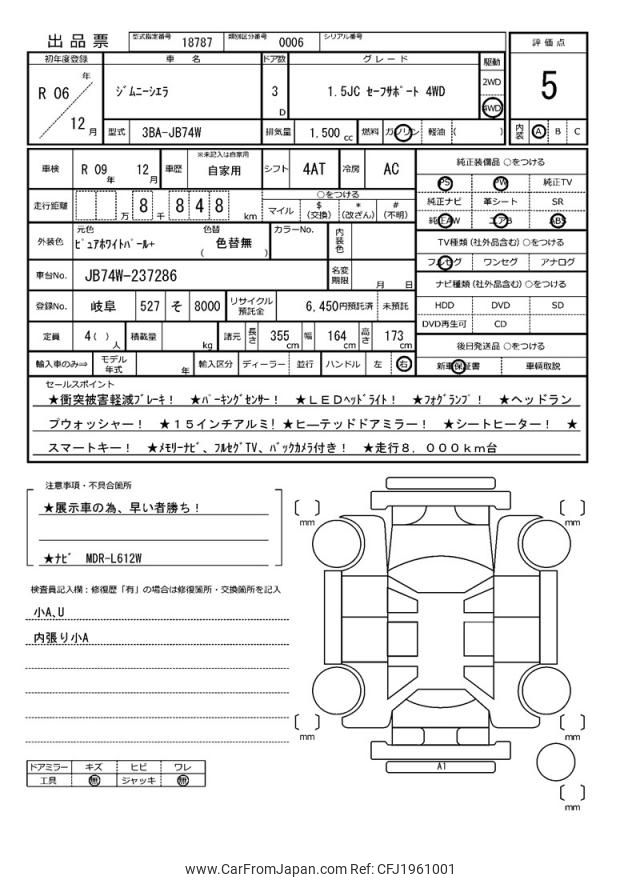 出品票 型式指定番号 18787 類別区分番号 0006 シリアル番号
評価点
5
内装 A B C
初年度登録 車名 ドア数 グレード 駆動
R 06 年 12 月
ジムニーシエラ 3 D 1.5JC セーフサポート 4WD
2WD
4WD
型式 3BA-JB74W 排気量 1.500 cc 燃料 ガソリン 軽油 ( )
車検 R 09 年 12 月 車歴 ※未記入は自家用 自家用 シフト 4AT 冷房 AC
走行距離 万 8 千 8 4 8 km
○をつける
マイル $ (交換) * (改ざん) # (不明)
外装色 元色 ピュアホワイトパール+ 色替 ( 色替無 ) カラーNo. 内装色
車台No. JB74W-237286 名変期限 月 日
登録No. 岐阜 527 そ 8000 リサイクル預託金 6,450円預託済 未預託
定員 4( ) 人 積載量 kg 諸元 長さ 355 cm 幅 164 cm 高さ 173 cm
輸入車のみ⇒ モデル年式 年 輸入区分 ディーラー 並行 ハンドル 左 右
純正装備品 ○をつける
PS PW 純正TV
純正ナビ 革シート SR
純正AW エアB ABS
TV種類 (社外品含む) ○をつける
フルセグ ワンセグ アナログ
ナビ種類 (社外品含む) ○をつける
HDD DVD SD
DVD再生可 CD
後日発送品 ○をつける
新車保証書 車輌取説
セールスポイント
★衝突被害軽減ブレーキ! ★パーキングセンサー! ★LEDヘッドライト! ★フォグランプ! ★ヘッドラン
プウォッシャー! ★15インチアルミ! ★ヒーテッドドアミラー! ★シートヒーター! ★
スマートキー! ★メモリーナビ、フルセグTV、バックカメラ付き! ★走行8,000km台
注意事項・不具合箇所
★展示車の為、早い者勝ち!
★ナビ MDR-L612W
検査員記入欄:修復歴「有」の場合は修復箇所・交換箇所を記入
小A,U
内張り小A
ドアミラー キズ ヒビ ワレ
工具 無 ジャッキ 無
[ ] mm
[ ] mm
[ ] mm
[ ] mm
[ ] mm
A1
www.CarFromJapan.com Ref: CFJ1961001